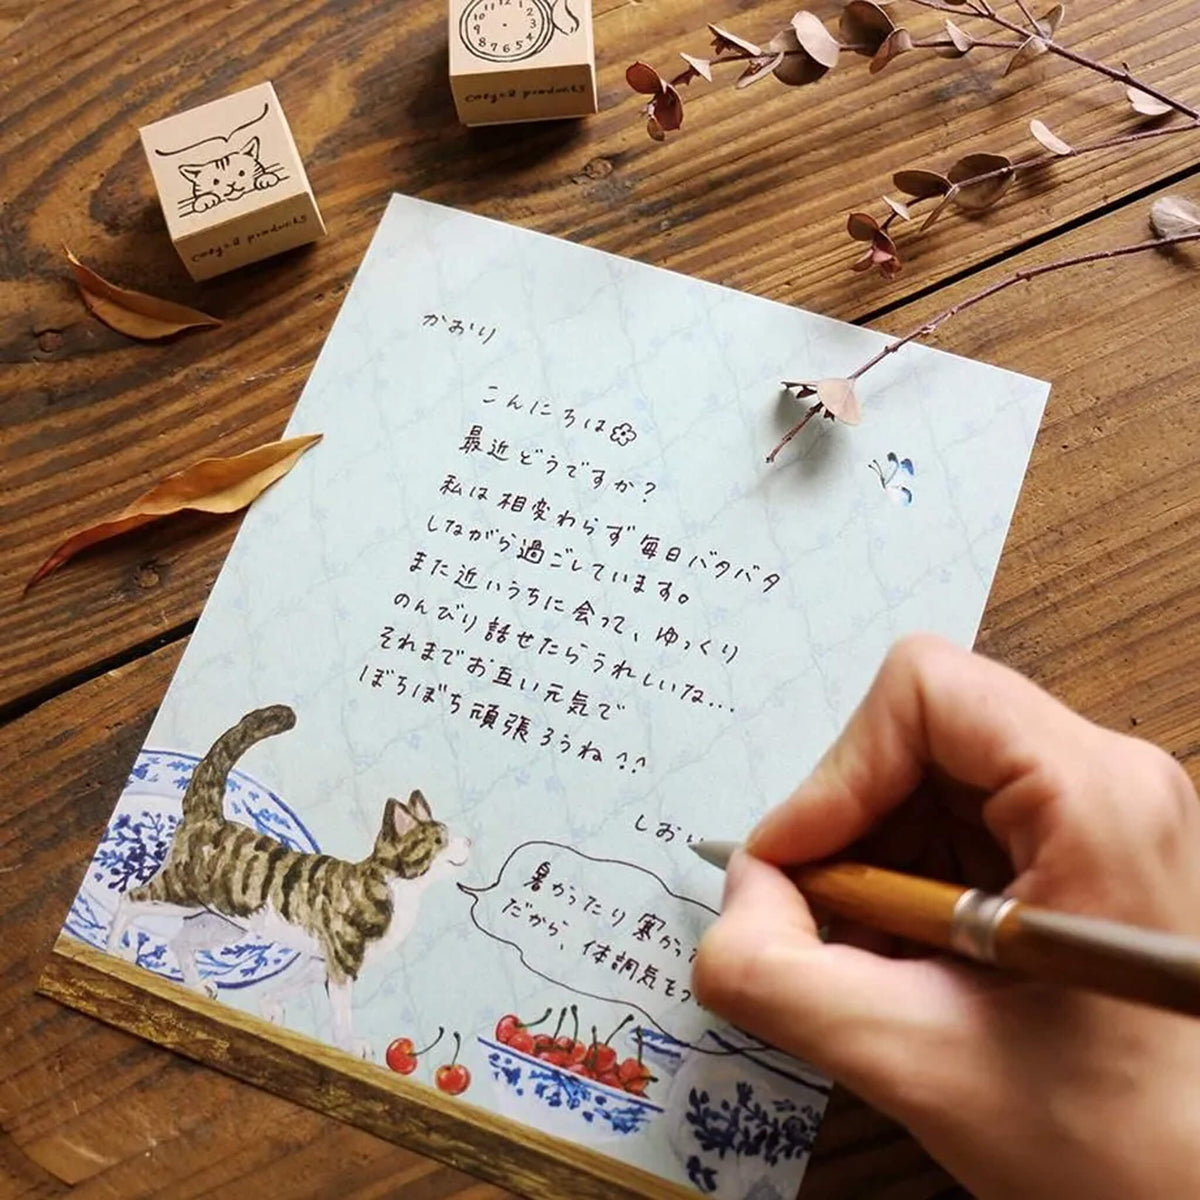 10 11 12 1 2 3 4 5 6 7 8 9
かおり
こんにちは
最近どうですか?
私は相変わらず毎日バタバタ
しながら過ごしています。
また近いうちに会って、ゆっくり
のんびり話せたらうれしいな...
それまでお互い元気で
ぼちぼち頑張ろうね^^
しおり
暑かったり寒かった
だから、体調気をつ